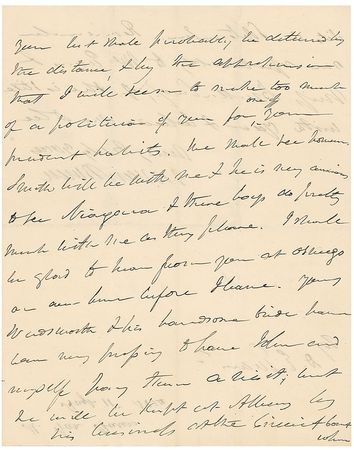 Your last shall probably be detained by
the distance, & by the apprehension
that I will seem to make too much
of a politician of you for one of your
prudent habits. We shall see however
Smith will be with me & he is very anxious
to see Niagara & these boys do pretty
much with me as they please. I shall
be glad to hear from you at Oswego
or
before I leave. Young
Wadsworth & his handsome bride have
been very pressing to have John and
myself pay them a visit, but
he will be kept at Albany by
his business at the Circuit Court
when